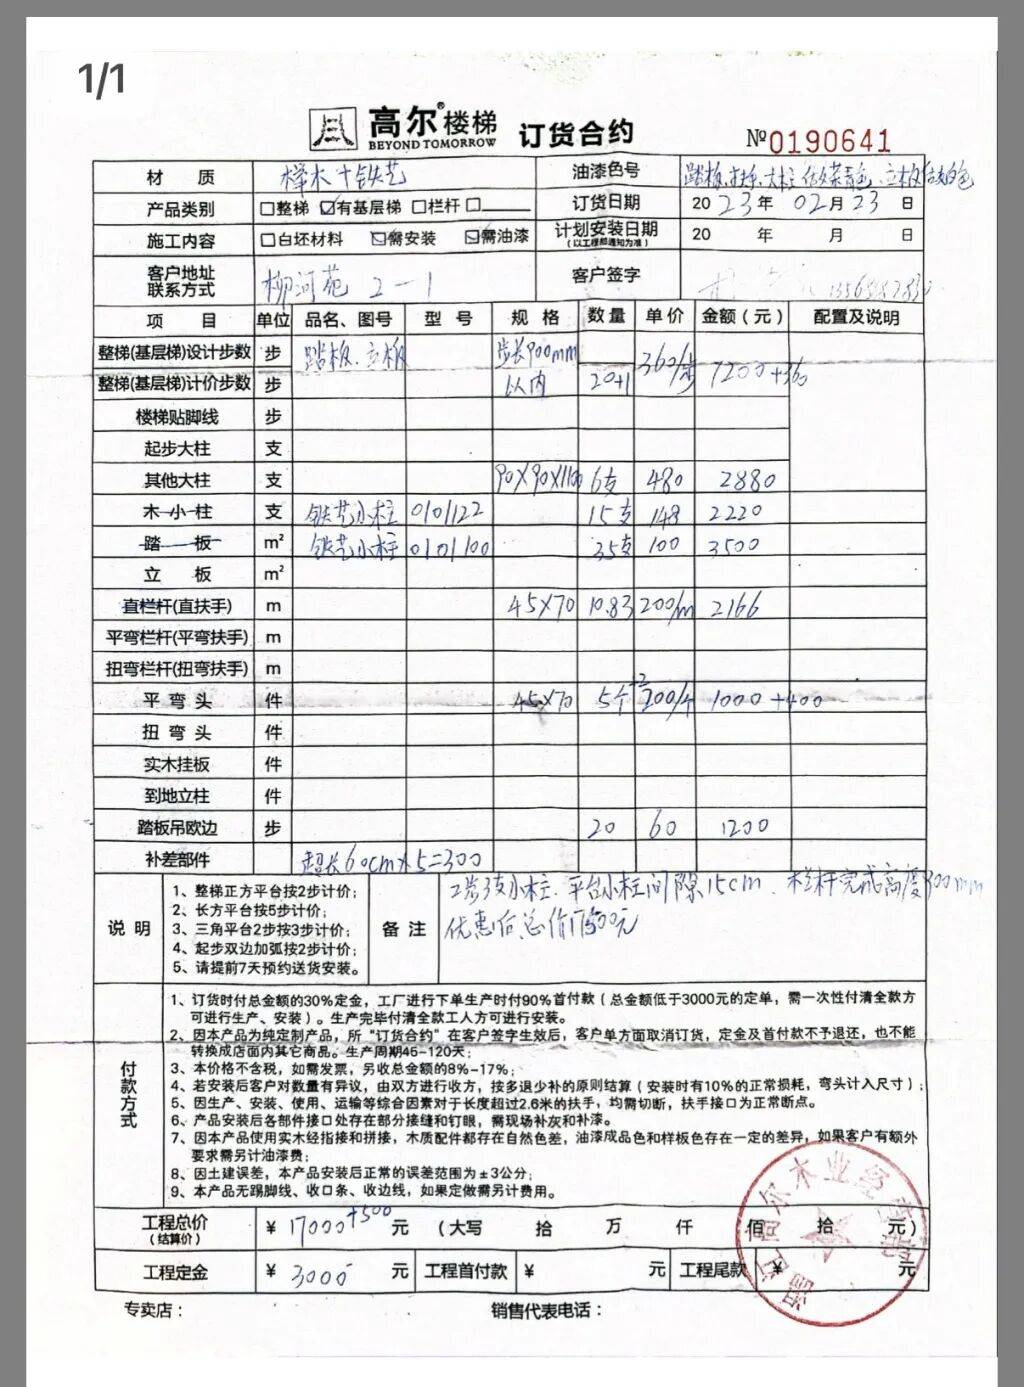 1/1
高尔®楼梯 订货合约 №0190641
BEYOND TOMORROW
材 质 榉木+铁艺 油漆色号
产品类别 □整梯 ☑有基层梯 □栏杆 □ 订货日期 2023年02月23日
施工内容 □白坯材料 ☑需安装 ☑需油漆 计划安装日期 20 年 月 日
(以工程部通知为准)
客户地址 联系方式 柳河苑 2-1 客户签字
项 目 单位 品名、图号 型 号 规 格 数量 单价 金额(元) 配置及说明
整梯(基层梯)设计步数 步 踏板、立板 步长900mm 360/步 7200+360
整梯(基层梯)计价步数 步 以内 20+1
楼梯贴脚线 步
起步大柱 支
其他大柱 支 90X90X1100 6支 480 2880
木小柱 支 铁艺小柱 0101122 15支 148 2220
踏 板 m² 铁艺小柱 0101100 35支 100 3500
立 板 m²
直栏杆(直扶手) m 45X70 10.83 200/m 2166
平弯栏杆(平弯扶手) m
扭弯栏杆(扭弯扶手) m
平 弯 头 件 45X70 5个+2 200/个 1000+400
扭 弯 头 件
实木挂板 件
到地立柱 件
踏板吊欧边 步 20 60 1200
补差部件 超长60cmX5=300
说 明
1、整梯正方平台按2步计价;
2、长方平台按5步计价;
3、三角平台2步按3步计价;
4、起步双边加弧按2步计价;
5、请提前7天预约送货安装。
备 注
2步3支小柱、平台小柱间隙15cm、栏杆完成高度900mm
优惠后总价17500元
付款方式
1、订货时付总金额的30%定金,工厂进行下单生产时付90%首付款(总金额低于3000元的定单,需一次性付清全款方
可进行生产、安装)。生产完毕付清全款工人方可进行安装。
2、因本产品为纯定制产品,所“订货合约”在客户签字生效后,客户单方面取消订货,定金及首付款不予退还,也不能
转换成店面内其它商品。生产周期45-120天;
3、本价格不含税,如需发票,另收总金额的8%-17%;
4、若安装后客户对数量有异议,由双方进行收方,按多退少补的原则结算(安装时有10%的正常损耗,弯头计入尺寸);
5、因生产、安装、使用、运输等综合因素对于长度超过2.6米的扶手,均需切断,扶手接口为正常断点。
6、产品安装后各部件接口处存在部分接缝和钉眼,需现场补灰和补漆。
7、因本产品使用实木经指接和拼接,木质配件都存在自然色差,油漆成品色和样板色存在一定的差异,如果客户有额外
要求需另计油漆费;
8、因土建误差,本产品安装后正常的误差范围为±3公分;
9、本产品无踢脚线、收口条、收边线,如果定做需另计费用。
工程总价 ¥ 17000+500 元 (大写 拾 万 仟 佰 拾 元)
(结算价)
工程定金 ¥ 3000 元 工程首付款 ¥ 元 工程尾款 ¥ 元
专卖店: 销售代表电话: